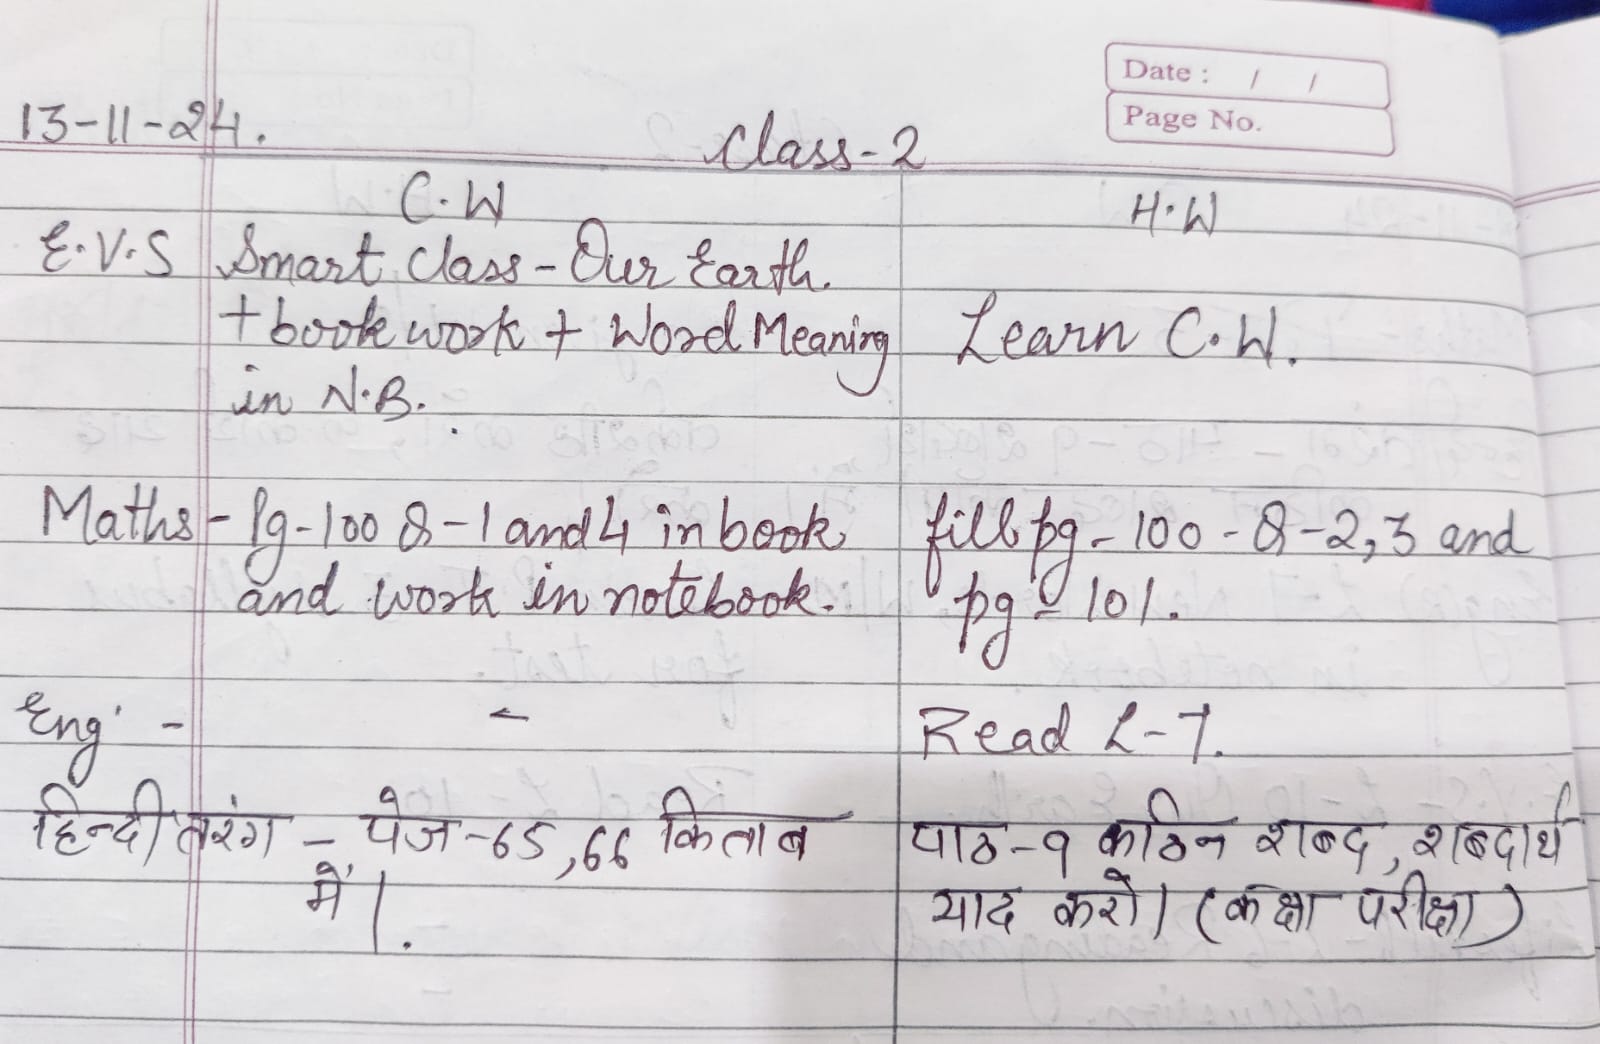 Date : / /
Page No.
13-11-24.
Class-2
C.W
H.W
E.V.S Smart Class - Our Earth.
+ book work + Word Meaning
in N.B.
Learn C.W.
Maths - Pg-100 Q-1 and 4 in book
and work in notebook.
fill pg - 100 - Q-2,3 and
pg - 101.
Eng - -
Read L-7.
हिन्दी तरंग - पेज-65,66 किताब
में।
पाठ-9 कठिन शब्द, शब्दार्थ
याद करो। (कक्षा परीक्षा)